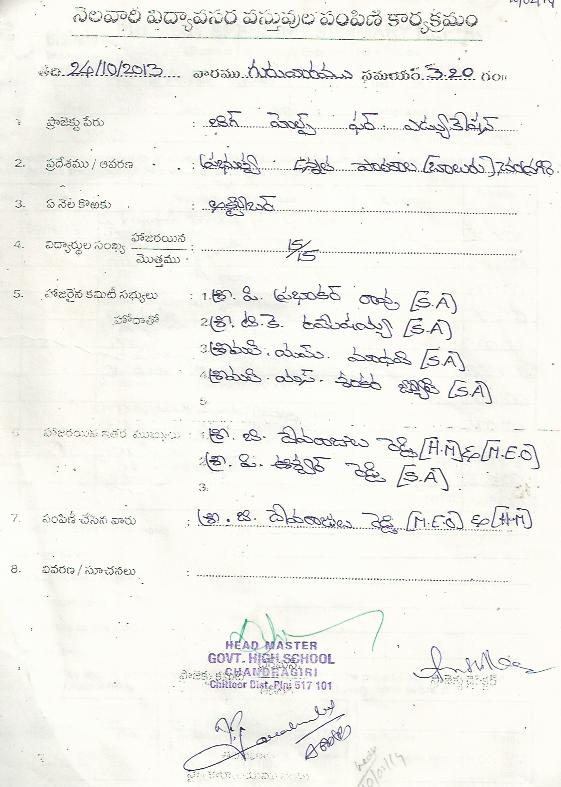 నెలవారీ విద్యావసర వస్తువుల పంపిణి కార్యక్రమం
తేది 24/10/2013 వారము గురువారము సమయం 3.20 గం॥
1. ప్రాజెక్టు పేరు : బిగ్ హెల్ప్ ఫర్ ఎడ్యుకేషన్
2. ప్రదేశము / ఆవరణ : ప్రభుత్వ ఉన్నత పాఠశాల (బాలురు), చంద్రగిరి
3. ఏ నెల కొఱకు : అక్టోబర్
4. విద్యార్థుల సంఖ్య హాజరయిన / మొత్తము : 15/15
5. హాజరైన కమిటీ సభ్యులు : 1. శ్రీ. పి. ప్రభాకర్ రాజు [S.A]
హోదాతో 2. శ్రీ. టి.కె. [S.A]
3. శ్రీమతి. యమ్. మాధవి [S.A]
4. శ్రీమతి. యస్. [S.A]
5.
6. హాజరయిన ఇతర ముఖ్యులు : 1. శ్రీ. జి. దేవరాజులు రెడ్డి [H.M] & [M.E.O]
2. శ్రీ. పి. రెడ్డి [S.A]
3.
7. పంపిణీ చేసిన వారు : శ్రీ. జి. దేవరాజులు రెడ్డి [M.E.O] & [H.M]
8. వివరణ / సూచనలు :
HEAD MASTER
GOVT. HIGH SCHOOL
CHANDRAGIRI
Chittoor Dist. Pin 517 101